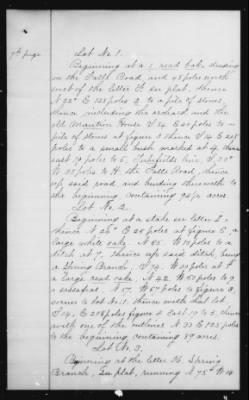 7th page
Lot No 1.
Beginning at a red oak, standing
on the Falls Road, and 48 poles north
west of the letter F. see plat, thence
N 22° E 138 poles 2 to a pile of stones,
thence including the orchard and the
old Mansion House S 74 E 60 poles to a
pile of stones at figure 3 thence S 14 E 228
poles to a small bush marked at 4, thence
east 70 poles to 5, line, S 20°
W 35 poles to H. the Falls Road, thence
up said road, and binding therewith to
the beginning, containing acres.
Lot No. 2.
Beginning at a stake see letter L,
thence N 26° E 20 poles at figure 6, a
large white oak, N 65 W 70 poles to a
ditch at 7, thence up said ditch, being
a Spring Branch, S 79 W 20 poles at 8
a large red oak, N 42 W 67 poles to 9
a sapling, N 57 W 67 poles to figure 3,
corner to lot No 1. thence with said lot
S 14, E 228 poles figure 4 East 70 to 5, thence
with one of the outlines N 33 E 123 poles
to the beginning, containing 89 acres.
Lot No. 3.
Beginning at the letter M, Spring
Branch, See plat, running N 75° W 14